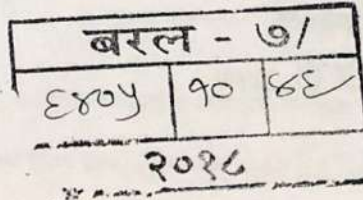 बरल - ७/
६४०५ १० ४६
२०१८